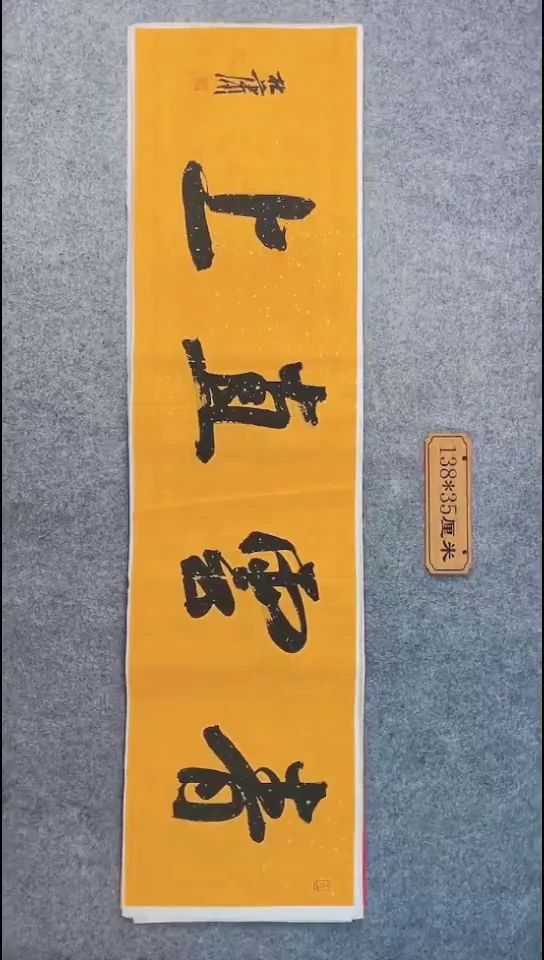 青雲直上
138*35厘米